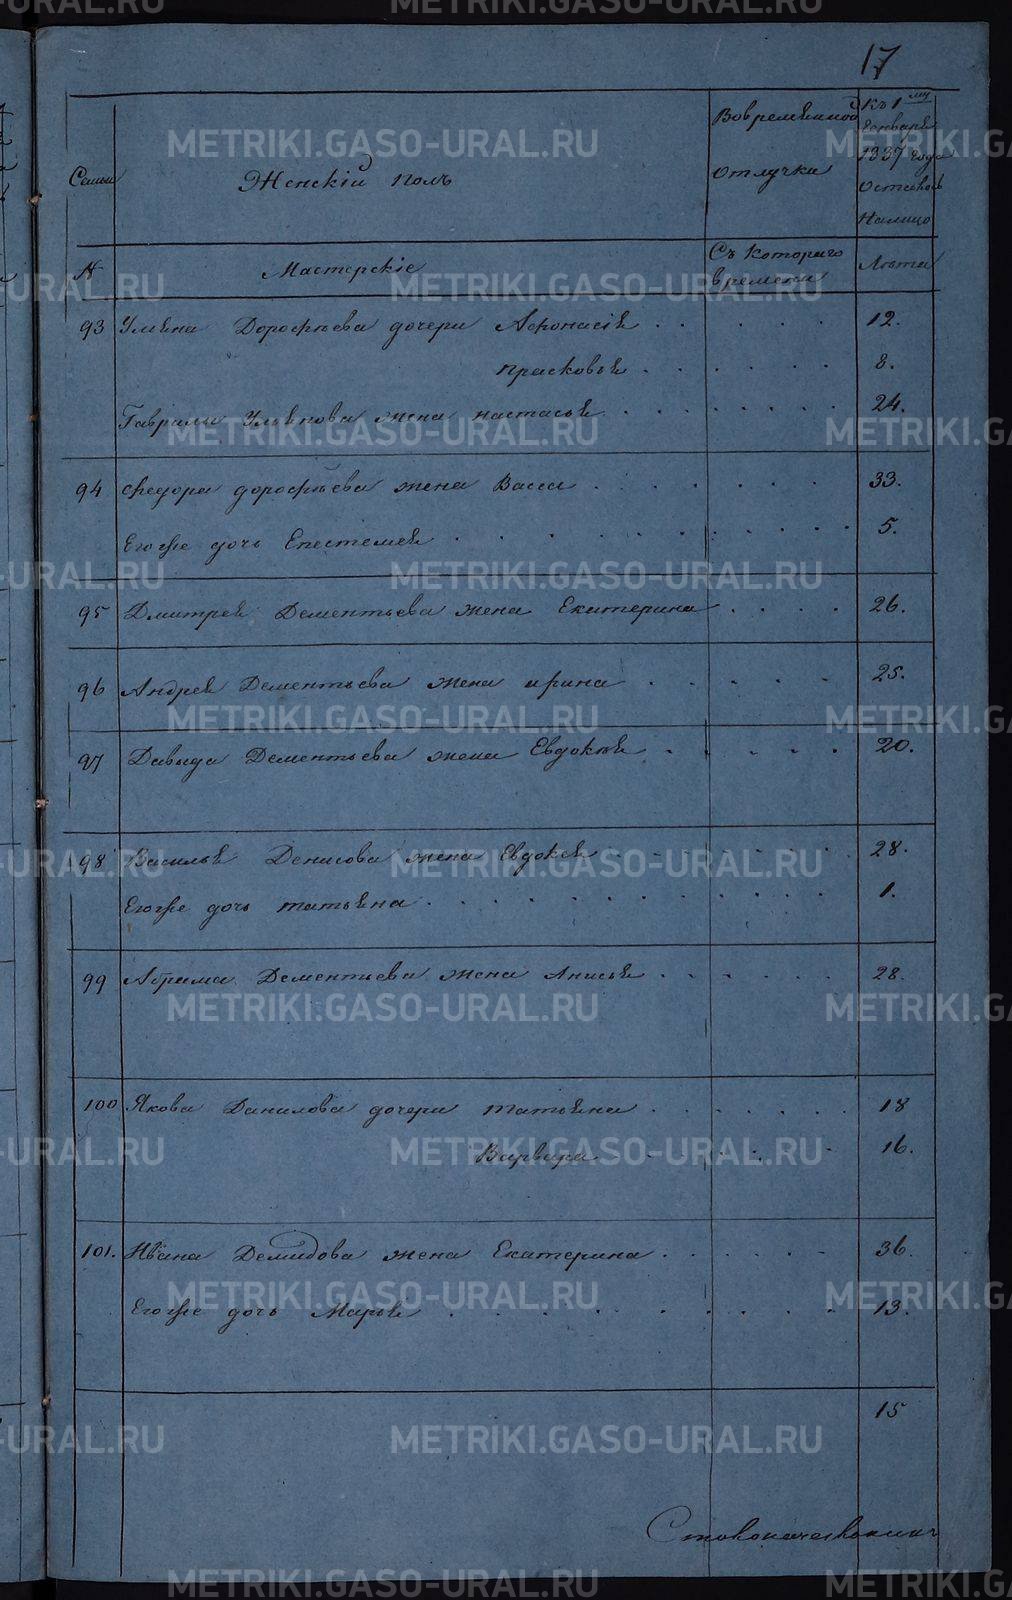 17
Семьи
Женскій полъ
Вовременной отлучки
Къ 1му Генваря 1837 года осталось Налицо
№
Мастерскіе
Съ котораго времени
Лѣта
93 Ульяна Дорофѣева дочери Афонасія . . . . . 12.
Прасковья . . . . . . 8.
Гаврилы Ульянова жена настасья . . . . . . . 24.
94 Федора дорофѣева жена Васса . . . . . . 33.
Егоже дочь Епестемея . . . . . . . . . . 5.
95 Дмитрея Дементьева жена Екатерина . . . . 26.
96 Андрея Дементьева жена ирина . . . . . 25.
97 Давыда Дементьева жена Евдокѣя . . . . . 20.
98 Василья Денисова жена Евдокея . . . . . . 28.
Егоже дочь татьяна . . . . . . . . . . . 1.
99 Абрама Дементьева жена Анисья . . . . . 28.
100 Якова Данилова дочери татьяна . . . . . . 18
Варвара . . . . . 16.
101. Ивана Демидова жена Екатерина . . . . . 36.
Егоже дочь Марья . . . . . . . . . 13.
15
METRIKI.GASO-URAL.RU